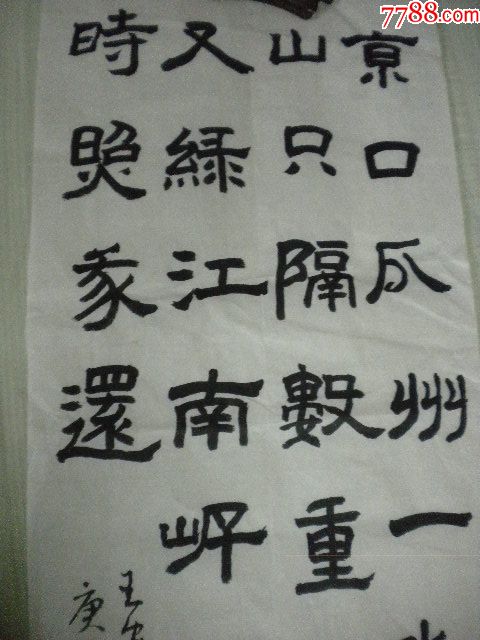 7788.com
京口瓜州一水
山只隔數重
又緑江南岸
時照我還
王安
庚